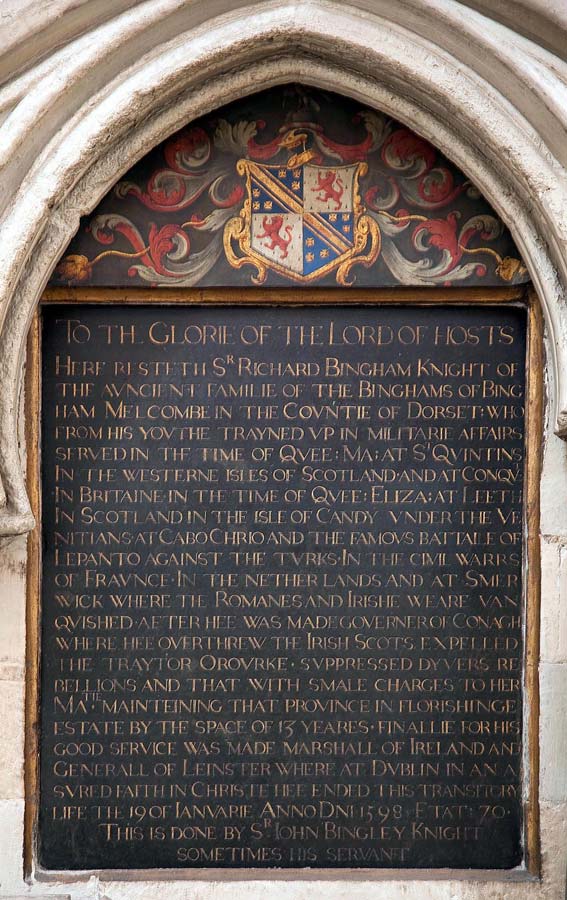 TO THE GLORIE OF THE LORD OF HOSTS
HERE RESTETH Sᴿ RICHARD BINGHAM KNIGHT OF
THE AVNCIENT FAMILIE OF THE BINGHAMS OF BING
HAM MELCOMBE IN THE COVNTIE OF DORSET· WHO
FROM HIS YOVTHE TRAYNED VP IN MILITARIE AFFAIRS
SERVED IN THE TIME OF QVEE: MA: AT Sᵀ QVINTINS
IN THE WESTERNE ISLES OF SCOTLAND·AND AT CONQVᵀ
IN BRITAINE·IN THE TIME OF QVEE: ELIZA: AT LEETH
IN SCOTLAND IN THE ISLE OF CANDY VNDER THE VE
NITIANS·AT CABO CHRIO AND THE FAMOVS BATTALE OF
LEPANTO AGAINST THE TVRKS·IN THE CIVIL WARRS
OF FRAVNCE·IN THE NETHER LANDS AND AT SMER
WICK WHERE THE ROMANES AND IRISHE WEARE VAN
QVISHED· AFTER HEE WAS MADE GOVERNER OF CONAGH
WHERE HEE OVERTHREW THE IRISH SCOTS EXPELLED
THE TRAYTOR OROVRKE· SVPPRESSED DYVERS RE
BELLIONS AND THAT WITH SMALE CHARGES TO HER
MAᵀᴵᴱ· MAINTEINING THAT PROVINCE IN FLORISHINGE
ESTATE BY THE SPACE OF 13 YEARES· FINALLIE FOR HIS
GOOD SERVICE WAS MADE MARSHALL OF IRELAND AND
GENERALL OF LEINSTER WHERE AT DVBLIN IN AN A
SVRED FAITH IN CHRISTE HEE ENDED THIS TRANSITORY
LIFE TH 19 OF IANVARIE ANNO DNI 1598· ETAT: 70·
THIS IS DONE BY Sᴿ IOHN BINGLEY KNIGHT
SOMETIMES HIS SERVANT